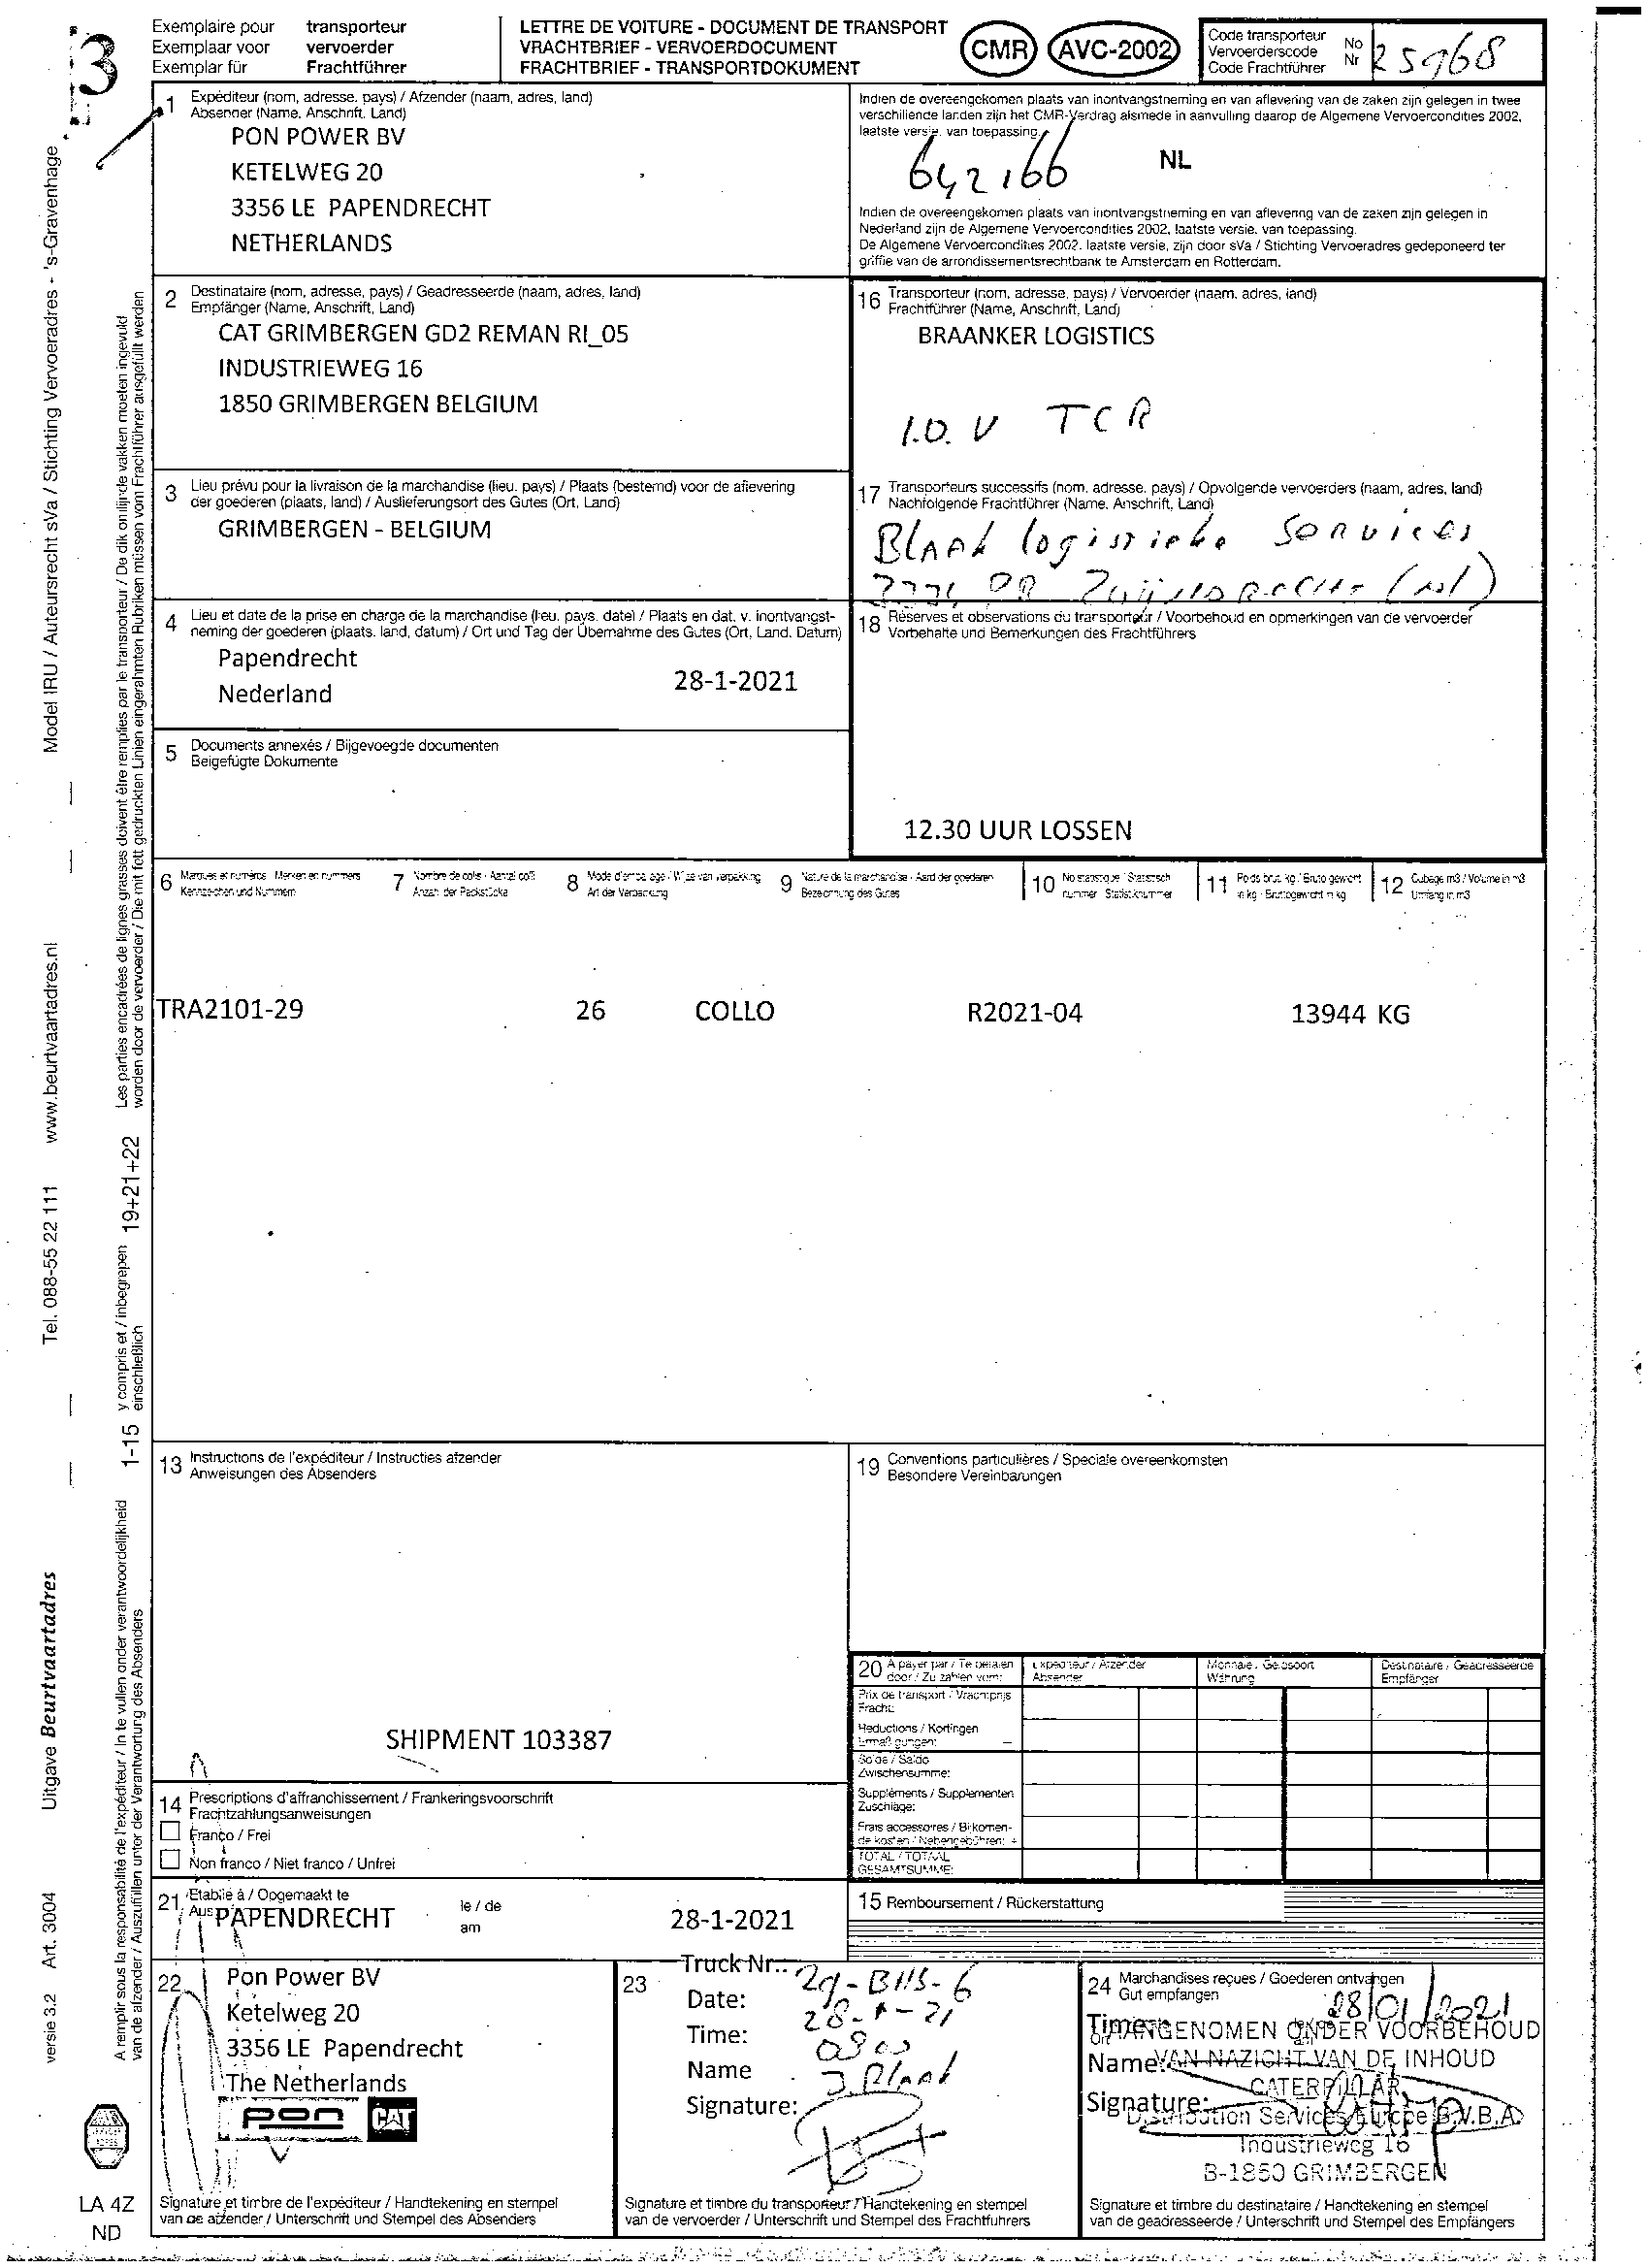 3
Exemplaire pour transporteur
Exemplaar voor vervoerder
Exemplar für Frachtführer
LETTRE DE VOITURE - DOCUMENT DE TRANSPORT
VRACHTBRIEF - VERVOERDOCUMENT
FRACHTBRIEF - TRANSPORTDOKUMENT
CMR AVC-2002
Code transporteur
Vervoerderscode
Code Frachtführer
No
Nr
1 Expéditeur (nom, adresse, pays) / Afzender (naam, adres, land)
Absender (Name, Anschrift, Land)
PON POWER BV
KETELWEG 20
3356 LE PAPENDRECHT
NETHERLANDS
Indien de overeengekomen plaats van inontvangstneming en van aflevering van de zaken zijn gelegen in twee
verschillende landen zijn het CMR-Verdrag alsmede in aanvulling daarop de Algemene Vervoercondities 2002,
laatste versie, van toepassing.
642166
NL
Indien de overeengekomen plaats van inontvangstneming en van aflevering van de zaken zijn gelegen in
Nederland zijn de Algemene Vervoercondities 2002, laatste versie, van toepassing.
De Algemene Vervoercondities 2002, laatste versie, zijn door sVa / Stichting Vervoeradres gedeponeerd ter
griffie van de arrondissementsrechtbank te Amsterdam en Rotterdam.
2 Destinataire (nom, adresse, pays) / Geadresseerde (naam, adres, land)
Empfänger (Name, Anschrift, Land)
CAT GRIMBERGEN GD2 REMAN RI_05
INDUSTRIEWEG 16
1850 GRIMBERGEN BELGIUM
16 Transporteur (nom, adresse, pays) / Vervoerder (naam, adres, land)
Frachtführer (Name, Anschrift, Land)
BRAANKER LOGISTICS
I.O.V TCR
3 Lieu prévu pour la livraison de la marchandise (lieu, pays) / Plaats (bestemd) voor de aflevering
der goederen (plaats, land) / Auslieferungsort des Gutes (Ort, Land)
GRIMBERGEN - BELGIUM
17 Transporteurs successifs (nom, adresse, pays) / Opvolgende vervoerders (naam, adres, land)
Nachfolgende Frachtführer (Name, Anschrift, Land)
Blaak logistieke Services
4 Lieu et date de la prise en charge de la marchandise (lieu, pays, date) / Plaats en dat. v. inontvangst-
neming der goederen (plaats, land, datum) / Ort und Tag der Übernahme des Gutes (Ort, Land, Datum)
Papendrecht
Nederland
28-1-2021
18 Réserves et observations du transporteur / Voorbehoud en opmerkingen van de vervoerder
Vorbehalte und Bemerkungen des Frachtführers
12.30 UUR LOSSEN
5 Documents annexés / Bijgevoegde documenten
Beigefügte Dokumente
6 Marques et numéros / Merken en nummers
Kennzeichen und Nummern
7 Nombre de colis / Aantal colli
Anzahl der Packstücke
8 Mode d'emballage / Wijze van verpakking
Art der Verpackung
9 Nature de la marchandise / Aard der goederen
Bezeichnung des Gutes
10 No statistique / Statistisch
nummer / Statistiknummer
11 Poids brut, kg / Bruto gewicht
in kg / Bruttogewicht in kg
12 Cubage m3 / Volume in m3
Umfang in m3
TRA2101-29 26 COLLO R2021-04 13944 KG
13 Instructions de l'expéditeur / Instructies afzender
Anweisungen des Absenders
SHIPMENT 103387
19 Conventions particulières / Speciale overeenkomsten
Besondere Vereinbarungen
14 Prescriptions d'affranchissement / Frankeringsvoorschrift
Frachtzahlungsanweisungen
Franco / Frei
Non franco / Niet franco / Unfrei
20 A payer par / Te betalen
door / Zu zahlen vom:
Expéditeur / Afzender
Absender
Monnaie / Geldsoort
Währung
Destinataire / Geadresseerde
Empfänger
Prix de transport / Vrachtprijs
Fracht:
Reductions / Kortingen
Ermäßigungen: −
Solde / Saldo
Zwischensumme:
Suppléments / Supplementen
Zuschläge:
Frais accessoires / Bijkomen-
de kosten / Nebengebühren: +
TOTAL / TOTAAL
GESAMTSUMME:
21 Etablie à / Opgemaakt te
Aus
PAPENDRECHT
le / de
am
28-1-2021
15 Remboursement / Rückerstattung
22 Pon Power BV
Ketelweg 20
3356 LE Papendrecht
The Netherlands
pon CAT
Signature et timbre de l'expéditeur / Handtekening en stempel
van de afzender / Unterschrift und Stempel des Absenders
23
Truck Nr.:
Date: 28-1-21
Time:
Name J. Blaak
Signature:
Signature et timbre du transporteur / Handtekening en stempel
van de vervoerder / Unterschrift und Stempel des Frachtführers
24 Marchandises reçues / Goederen ontvangen
Gut empfangen
28/01/2021
Time:
AANGENOMEN ONDER VOORBEHOUD
Name:
VAN NAZICHT VAN DE INHOUD
CATERPILLAR
Signature:
Distribution Services Europe B.V.B.A.
Industrieweg 16
B-1850 GRIMBERGEN
Signature et timbre du destinataire / Handtekening en stempel
van de geadresseerde / Unterschrift und Stempel des Empfängers
Model IRU / Auteursrecht sVa / Stichting Vervoeradres - 's-Gravenhage
www.beurtvaartadres.nl
Tel. 088-55 22 111
Uitgave Beurtvaartadres
Art. 3004
versie 3.2
Les parties encadrées de lignes grasses doivent être remplies par le transporteur / De dik omlijnde vakken moeten ingevuld
worden door de vervoerder / Die mit fett gedruckten Linien eingerahmten Rubriken müssen vom Frachtführer ausgefüllt werden
1-15 y compris et / inbegrepen 19+21+22
einschließlich
A remplir sous la responsabilité de l'expéditeur / In te vullen onder verantwoordelijkheid
van de afzender / Auszufüllen unter der Verantwortung des Absenders
LA 4Z
ND